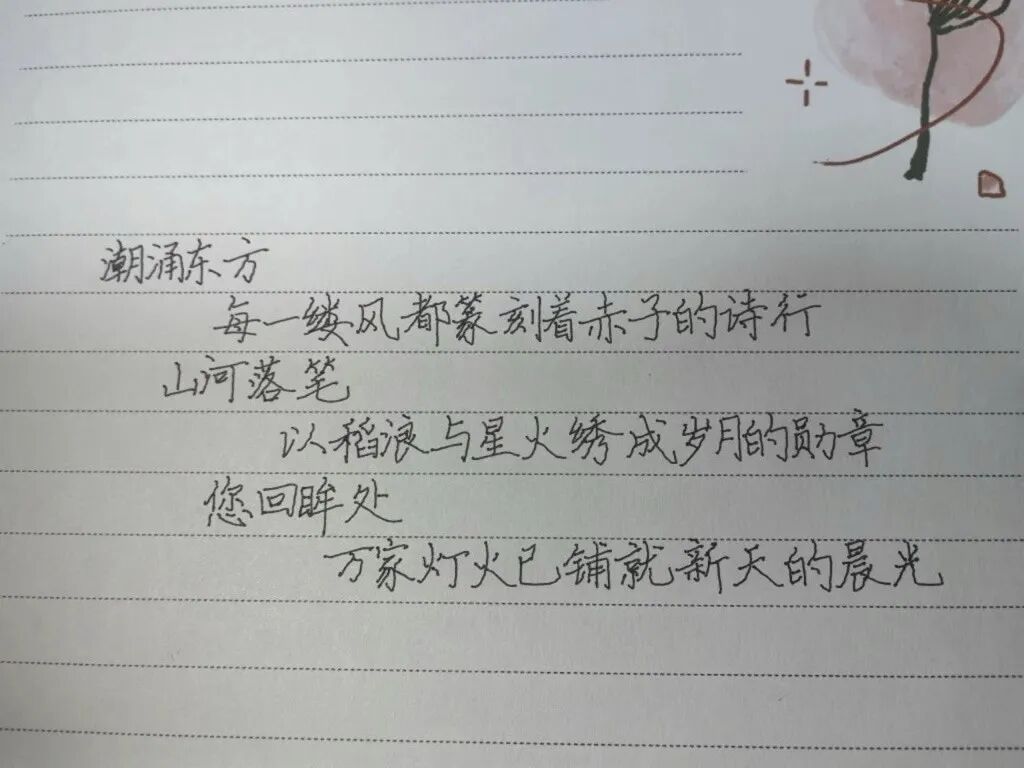 潮涌东方
每一缕风都篆刻着赤子的诗行
山河落笔
以稻浪与星火绣成岁月的勋章
您回眸处
万家灯火已铺就新天的晨光